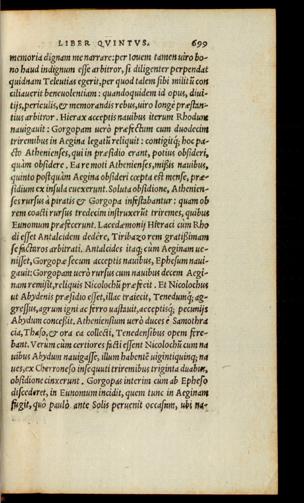 LIBER QVINTVS. 699
memoria dignam me narrare: per Iouem tamen uiro bo-
no haud indignum esse arbitror, si diligenter perpendat
quidnam Teleutias egerit, per quod talem sibi militũ con
ciliauerit beneuolentiam: quandoquidem id opus, diui-
tijs, periculis, & memorandis rebus, uiro longè præstan-
tius arbitror. Hierax acceptis nauibus iterum Rhodum
nauigauit: Gorgopam uerò præfectum cum duodecim
triremibus in Aegina legatũ reliquit: contigitq; hoc pa-
cto Athenienses, qui in præsidio erant, potius obsideri,
quàm obsidere. Ea re moti Athenienses, missis nauibus,
quinto postquàm Aegina obsideri cœpta est mense, præ-
sidium ex insula euexerunt. Soluta obsidione, Athenien-
ses rursus à piratis & Gorgopa infestabantur: quam ob
rem coacti rursus tredecim instruxerũt triremes, quibus
Eunomum præfecerunt. Lacedæmonij Hieraci cùm Rho
di esset Antalcidem dedêre, Tiribazo rem gratissimam
se facturos arbitrati. Antalcides itaq; cùm Aeginam ue-
nisset, Gorgopæ secum acceptis nauibus, Ephesum naui-
gauit: Gorgopam uerò rursus cum nauibus decem Aegi-
nam remisit, reliquis Nicolochũ præfecit. Et Nicolochus
ut Abydenis præsidio esset, illac traiecit, Tenedumq; ag-
gressus, agrum igni ac ferro uastauit, acceptisq; pecunijs
Abydum concessit. Atheniensium uerò duces è Samothra
cia, Thaso, & ora ea collecti, Tenedensibus opem fere-
bant. Verùm cùm certiores facti essent Nicolochũ cum na
uibus Abydum nauigasse, illum habentẽ uigintiquinq; na
ues, ex Cherroneso insequuti triremibus triginta duabus,
obsidione cinxerunt. Gorgopas interim cum ab Epheso
discederet, in Eunomum incidit, quem tunc in Aeginam
fugit, quò paulò ante Solis peruenit occasum, ubi na-